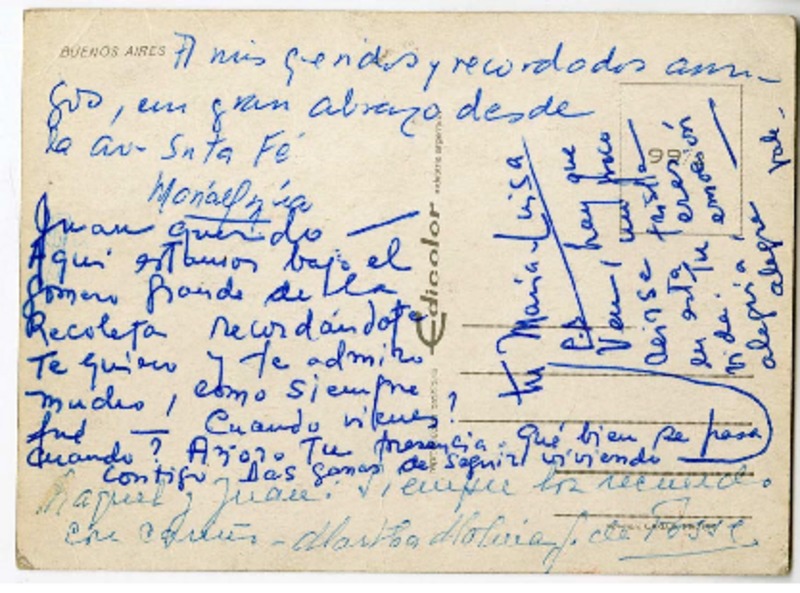 BUENOS AIRES
A mis queridos y recordados ami-
gos, un gran abrazo desde
la av Snta Fé
Juan querido —
Aquí estamos bajo el
gomero grande de la
Recoleta recordándote
Te quiero y te admiro
mucho, como siempre
fué — Cuando vienes?
Cuando? Añoro Tu presencia. Qué bien se pasa
contigo Las ganas de seguir viviendo
Raquel y Juan: Siempre los recuerdo
con cariño - Martha Molina J. de Posse.
Edicolor
industria argentina
tu María Luisa
hay que
Vení un poco
en esta
vida:
alegría
alegre
99